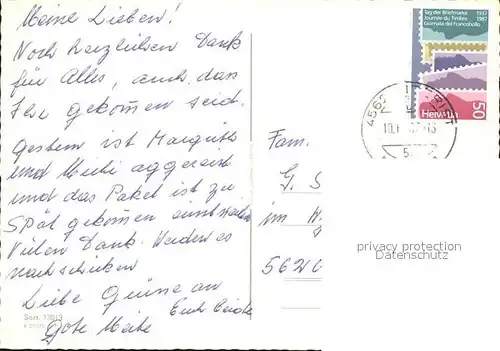 Meine Lieben!
Noch herzlichen Dank
für Alles, auch das
Ihr gekommen seid.
Gestern ist Margrith
und abgereist
und das Paket ist zu
spät gekommen
Vielen Dank. Werden es
nachschicken
Liebe Grüsse an
Euch Beide
Gote
Sort. 130/5
Tag der Briefmarke 1937
Journée du Timbre 1987
Giornata del Francobollo
Helvetia 50
456
10.1
Fam.
G. S
im W
5620
privacy protection
Datenschutz